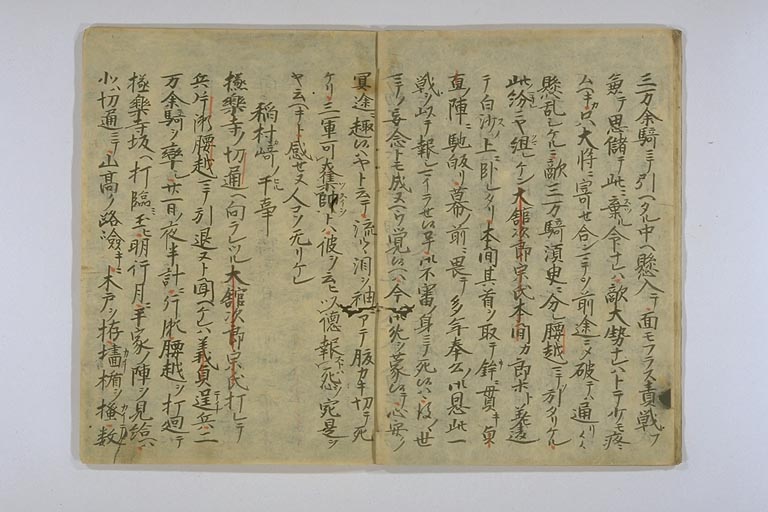 三万余騎ニテ引ヘタル中ヘ懸入テ面モフラス責戦フ
兼テ思儲テ此ニ棄ル命ナレハ敵大勢ナレハトテ少モ疼
ムヘキカ只大将ニ寄セ合ンニテシ前途ニメ破テハ通リ
懸乱シケルニ敵三万騎須臾ニ分レ腰越ニテ引タリケル
此紛ニヤ組レケン大館次郎宗氏本間カ郎ホト差違
テ白沙ノ上ニ臥シタリ本間其首ヲ取テ鋒ニ貫キ貞
直陣ニ馳皈リ幕ノ前ニ畏テ多年奉公ノ恩此一
戦ヲ以テ報シマイラせ候又不審ノ身ニテ死候ハヽ後ノ世
ミテノ妄念トモ成ヌヘウ覚候ヘハ今ハ
冥途ニ趣候ハヤト云テ流ルヽ泪ヲ袖ニアテ腹カキ切テ死
ケリ三軍可奪帥トハ彼ヲ云ヒ以徳報怨是ヲ
ヤ云ヘキト感せヌ人コソ无リケレ
稲村﨑ノ干事
極楽寺ノ切通ヘ向フレツル大館次郎宗氏打レテ
兵片瀬腰越ニテ引退ヌト聞ヘケレハ義貞逞兵二
万余騎ヲ率シ廿一日ノ夜半計ニ片瀬腰越ヲ打廻テ
極楽寺坂ヘ打臨玉フ明行月ニ平家ノ陣ヲ見給ヘハ
北ハ切通ニテ山高ク路険キニ木戸ヲ構墻楯ヲ掻数